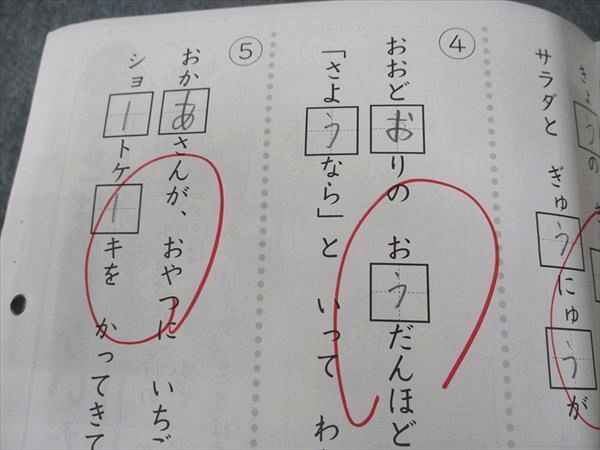 きょうの
サラダと ぎゅうにゅうが
④
おおどおりの おうだんほど
「さようなら」と いって わ
⑤
おかあさんが、おやつに いちご
ショートケーキを かってきて